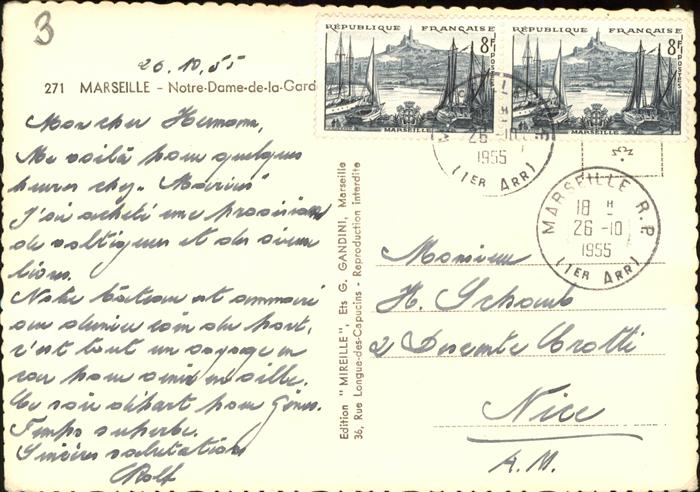 3
26.10.55
271 MARSEILLE - Notre-Dame-de-la-Gard
Mon cher Hermann,
Me voilà pour quelques
heures chez "Marius"
J'ai acheté une provision
de voltigeurs et de
Notre bateau est amarré
au dernier coin du port,
c'est tout un voyage en
pour venir en ville.
Ce soir départ pour Gênes.
Temps superbe.
Sincères salutations
Rolf
Edition "MIREILLE", Ets G. GANDINI, Marseille
36, Rue Longue-des-Capucins - Reproduction interdite
RÉPUBLIQUE FRANÇAISE
8F
POSTES
MARSEILLE
RÉPUBLIQUE FRANÇAISE
8F
POSTES
MARSEILLE
26-10
1955
(1ER ARR)
MARSEILLE R.P.
18 H
26-10
1955
(1ER ARR)
Monsieur
H. Schaub
2 Descente Crotti
Nice
A.M.